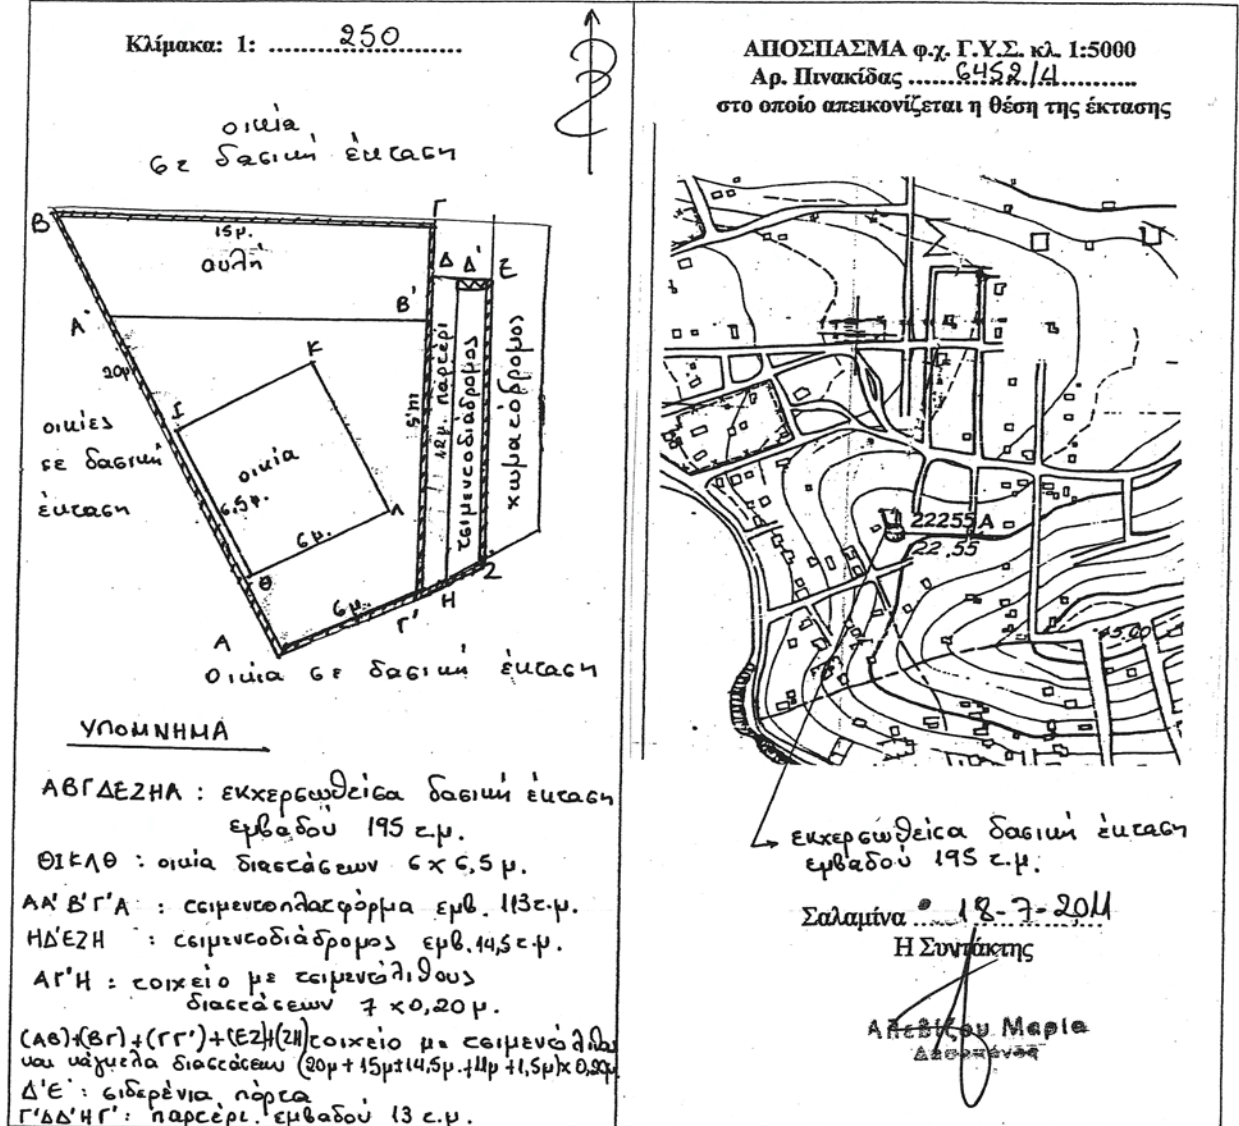 Κλίμακα: 1: ......250......
οικία
σε δασική έκταση
Β
15μ.
αυλή
Γ
Δ Δ' Ε
Α'
Β'
20μ
Κ
Ι
οικίες
σε δασική
έκταση
οικία
6,5μ.
6μ.
Λ
Θ
12μ. παρτέρι
τσιμεντοδιάδρομος
χωματόδρομος
Ζ
Η
6μ.
Γ'
Α
οικία σε δασική έκταση
ΥΠΟΜΝΗΜΑ
ΑΒΓΔΕΖΗΑ : εκχερσωθείσα δασική έκταση
εμβαδού 195 τ.μ.
ΘΙΚΛΘ : οικία διαστάσεων 6 x 6,5 μ.
ΑΑ' Β' Γ' Α : τσιμεντοπλατφόρμα εμβ. 113τ.μ.
ΗΔ'ΕΖΗ : τσιμεντοδιάδρομος εμβ. 14,5 τ.μ.
ΑΓ'Η : τοιχείο με τσιμεντόλιθους
διαστάσεων 7 x 0,20 μ.
(ΑΒ)+(ΒΓ)+(ΓΓ')+(ΕΖ)+(ΖΗ) τοιχείο με
και κάγκελα διαστάσεων (20μ + 15μ + 14,5μ. + 11μ + 1,5μ) x 0,20μ
Δ'Ε : σιδερένια πόρτα
Γ'ΔΔ'ΗΓ' : παρτέρι εμβαδού 13 τ.μ.
ΑΠΟΣΠΑΣΜΑ φ.χ. Γ.Υ.Σ. κλ. 1:5000
Αρ. Πινακίδας ......6452/4......
στο οποίο απεικονίζεται η θέση της έκτασης
22255 Α
22,55
εκχερσωθείσα δασική έκταση
εμβαδού 195 τ.μ.
Σαλαμίνα 18-7-2011
Η Συντάκτης
Αλεβίζου Μαρία